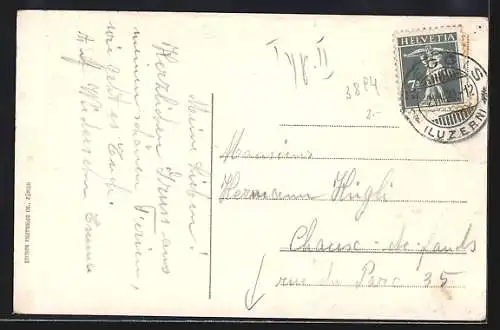 Meine Lieben!
Herzlichen Gruss aus
meinen schönen Ferien,
wie geht es Euch.
Auf Wiedersehn Emma
HELVETIA
7½
(LUZERN)
3884
2.-
Monsieur
Hermann Hügli
Chaux-de-fonds
rue du Parc 35